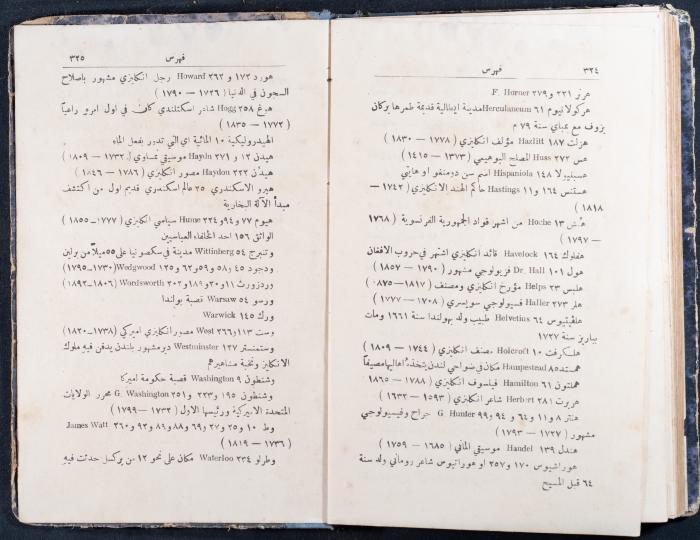 ٣٢٤ فهرس
هرنر ٢٣١ و ٢٧٩ F. Horner
هركولانيوم ٦١ Herculaneum مدينة ايطالية قديمة طمرها بركان
يزوف مع بمباي سنة ٧٩ م
هزلت ١٨٧ Hazlitt مؤلف انكليزي (١٧٧٨ — ١٨٣٠)
هس ٢٧٢ Huss المصلح البوهيمي (١٣٧٣ — ١٤١٥)
هسبنيولا ١٤٨ Hispaniola اسم سن دومنغو او هايتي
هستنس ١٦٤ و ١١ Hastings حاكم الهند الانكليزي (١٧٤٢ —
١٨١٨
هش ١٣ Hoche من اشهر قواد الجمهورية الفرنسوية (١٧٦٨
— ١٧٩٧)
هفلوك ١٦٤ Havelock قائد انكليزي اشتهر في حروب الافغان
هول ١٠١ Dr. Hall فزيولوجي مشهور (١٧٩٠ — ١٨٥٧)
هلبس ٢٣ Helps مؤرخ انكليزي ومصنف (١٨١٧—١٨٧٥)
هلر ٢٧٣ Haller فسيولوجي سويسري (١٧٠٨ — ١٧٧٧)
هلڤيتيوس ٦٤ Helvetius طبيب ولد بهولندا سنة ١٦٦١ ومات
بباريز سنة ١٧٢٧
هلكرفت ١٠ Holcroft مصنف انكليزي (١٧٤٤ — ١٨٠٩)
همستد ٨٥ Hampestead مكان في ضواحي لندن يتخذه اهاليها مصيفاً
هملتون ٦١ Hamilton فيلسوف انكليزي (١٧٨٨ — ١٨٦٥
هربرت ٢٨١ Herbert شاعر انكليزي (١٥٩٣ — ١٦٣٢)
هنتر ٨ و ١١ و ٦٤ و ٩٤ و ٩٩ G. Hunter جراح وفيسيولوجي
مشهور (١٧٢٧ — ١٧٩٣)
هندل ١٣٩ Handel موسيقي الماني (١٦٨٥ — ١٧٥٩)
هوراشيوس ١٧٠ و ٢٥٧ او هوراتيوس شاعر روماني ولد سنة
٦٤ قبل المسيح
فهرس ٣٢٥
هورد ١٧٢ و ٢٦٢ Howard رجل انكليزي مشهور باصلاح
السجون في الدنيا (١٧٢٦ — ١٧٩٠)
هوغ ٢٥٨ Hogg شاعر اسكتلندي كان في اول امره راعياً
(١٧٧٢ — ١٨٣٥)
الهيدروليكية ١٠ المائية اي التي تدير بفعل الماء
هيدن ١٢ و ٢٧١ Haydn موسيقي نمساوي (١٧٣٢ — ١٨٠٩)
هيدن ٢٢٢ Haydon مصور انكليزي (١٧٨٦ — ١٨٤٦)
هيرو الاسكندري ٢٥ عالم اسكندري قديم اول من اكتشف
مبدأ الآلة البخارية
هيوم ٧٧ و ٩٤ و ٢٢٤ Hume سياسي انكليزي (١٧٧٧—١٨٥٥
الواثق ١٥٦ احد الخلفاء العباسيين
وتنبرج ٥٤ Wittinberg مدينة في سكصونيا على ٥٥ ميلاً من برلين
ودجود ٤٥ و ٥٨ و ٥٩ و ٦٢ و ١٢٥ Wedgwood (١٧٣٠—١٧٩٥)
وردزورث ١١ و ٢٠ و ١٨٩ و ٢٠٢ Wordsworth (١٨٠٦—١٨٩٢)
ورسو ٥٤ Warsaw قصبة بولندا
ورك ١٤٥ Warwick
وست ١١٣ و ٢٦٦ West مصور انكليزي اميركي (١٧٣٨—١٨٢٠)
وستمنستر ١٢٧ Westminster دير مشهور بلندن يدفن فيه ملوك
الانكليز ونخبة مشاهيرهم
وشنطون ٩ Washington قصبة حكومة اميركا
وشنطون ١٩٥ و ٢٢٣ و ٢٥١ G. Washington محرر الولايات
المتحدة الاميركية ورئيسها الاول (١٧٣٢ — ١٧٩٩)
وط ١٠ و ٢٥ و ٢٧ و ٦٩ و ٨٨ و ٨٩ و ٩٢ و ٢٦٠ James Watt
(١٧٣٦ — ١٨١٩)
وطرلو ٢٣٤ Waterloo مكان على نحو ١٢ من بركسل حدثت فيه